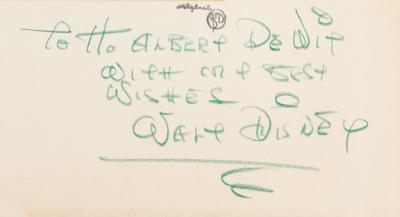 To Ho Albert De Wit
with my best
wishes
Walt Disney